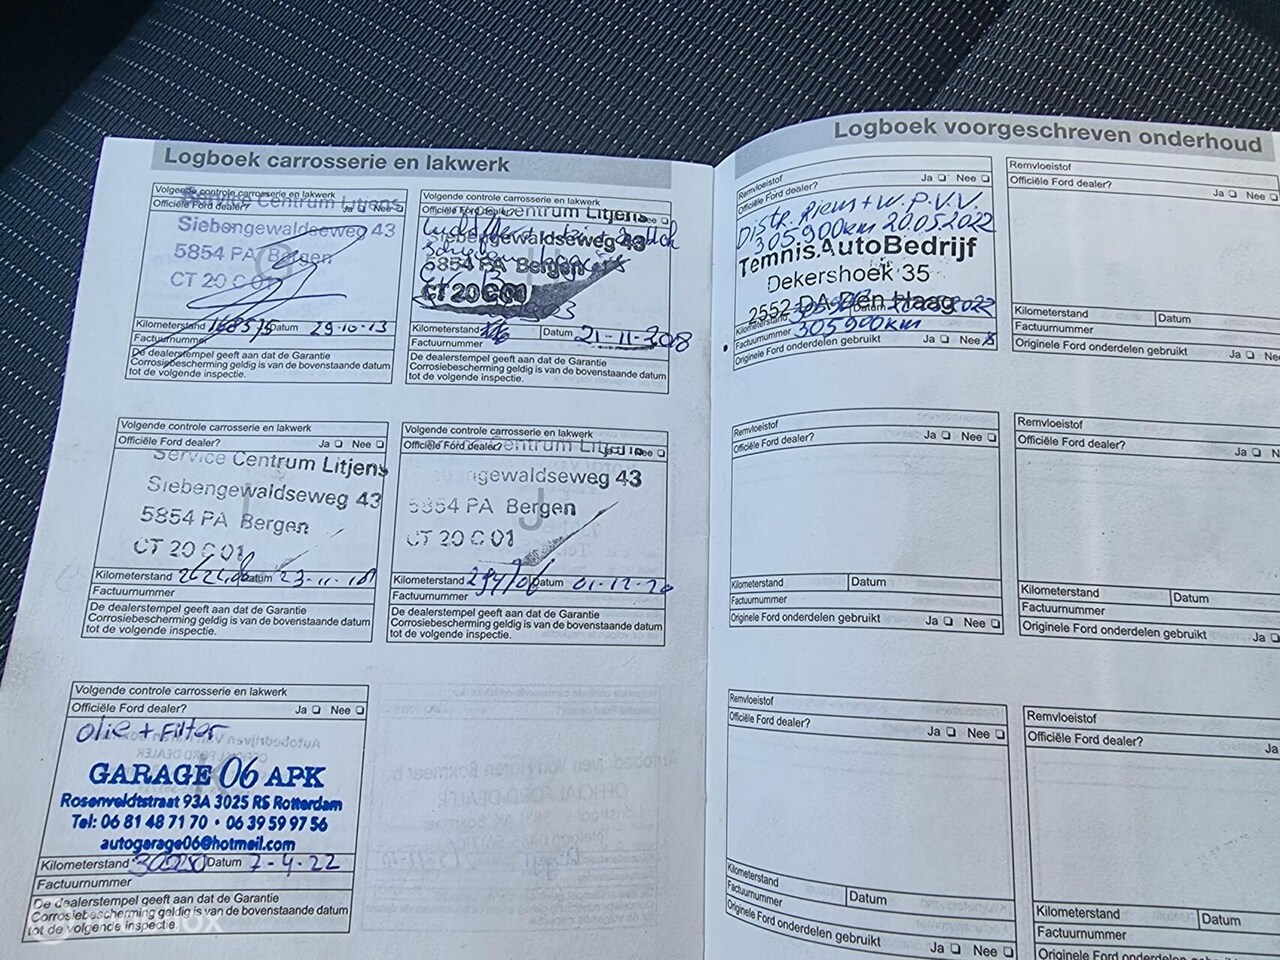 Logboek carrosserie en lakwerk
Volgende controle carrosserie en lakwerk
Officiële Ford dealer? Ja Nee
Service Centrum Litjens
Siebengewaldseweg 43
5854 PA Bergen
CT 20 C 01
Kilometerstand Datum 29-10-13
Factuurnummer
De dealerstempel geeft aan dat de Garantie
Corrosiebescherming geldig is van de bovenstaande datum
tot de volgende inspectie.
Volgende controle carrosserie en lakwerk
Officiële Ford dealer? Nee
Centrum Litjens
Siebengewaldseweg 43
5854 PA Bergen
CT 20 C 01
Kilometerstand Datum 21-11-
Factuurnummer
De dealerstempel geeft aan dat de Garantie
Corrosiebescherming geldig is van de bovenstaande datum
tot de volgende inspectie.
Volgende controle carrosserie en lakwerk
Officiële Ford dealer? Ja Nee
Service Centrum Litjens
Siebengewaldseweg 43
5854 PA Bergen
CT 20 C 01
Kilometerstand Datum 23-11-
Factuurnummer
De dealerstempel geeft aan dat de Garantie
Corrosiebescherming geldig is van de bovenstaande datum
tot de volgende inspectie.
Volgende controle carrosserie en lakwerk
Officiële Ford dealer? Nee
Centrum Litjens
ngewaldseweg 43
5854 PA Bergen
J
CT 20 C 01
Kilometerstand Datum 01-12-20
Factuurnummer
De dealerstempel geeft aan dat de Garantie
Corrosiebescherming geldig is van de bovenstaande datum
tot de volgende inspectie.
Volgende controle carrosserie en lakwerk
Officiële Ford dealer? Ja Nee
olie + Filter
GARAGE 06 APK
Rosenveldtstraat 93A 3025 RS Rotterdam
Tel: 06 81 48 71 70 • 06 39 59 97 56
autogarage06@hotmail.com
Kilometerstand Datum 7-4-22
Factuurnummer
De dealerstempel geeft aan dat de Garantie
Corrosiebescherming geldig is van de bovenstaande datum
tot de volgende inspectie.
Logboek voorgeschreven onderhoud
Remvloeistof
Officiële Ford dealer? Ja Nee
Distr. Riem + W.P.V.V.
305.900km 20.05.2022
Temnis.AutoBedrijf
Dekershoek 35
2552 DA Den Haag
Kilometerstand Datum
Factuurnummer 305900km
Originele Ford onderdelen gebruikt Ja Nee
Remvloeistof
Officiële Ford dealer? Ja Nee
Kilometerstand Datum
Factuurnummer
Originele Ford onderdelen gebruikt Ja Ne
Remvloeistof
Officiële Ford dealer? Ja Nee
Kilometerstand Datum
Factuurnummer
Originele Ford onderdelen gebruikt Ja Nee
Remvloeistof
Officiële Ford dealer? Ja N
Kilometerstand Datum
Factuurnummer
Originele Ford onderdelen gebruikt Ja
Remvloeistof
Officiële Ford dealer? Ja Nee
Kilometerstand Datum
Factuurnummer
Originele Ford onderdelen gebruikt Ja Nee
Remvloeistof
Officiële Ford dealer? Ja
Kilometerstand Datum
Factuurnummer
Originele Ford onderdelen gebruikt